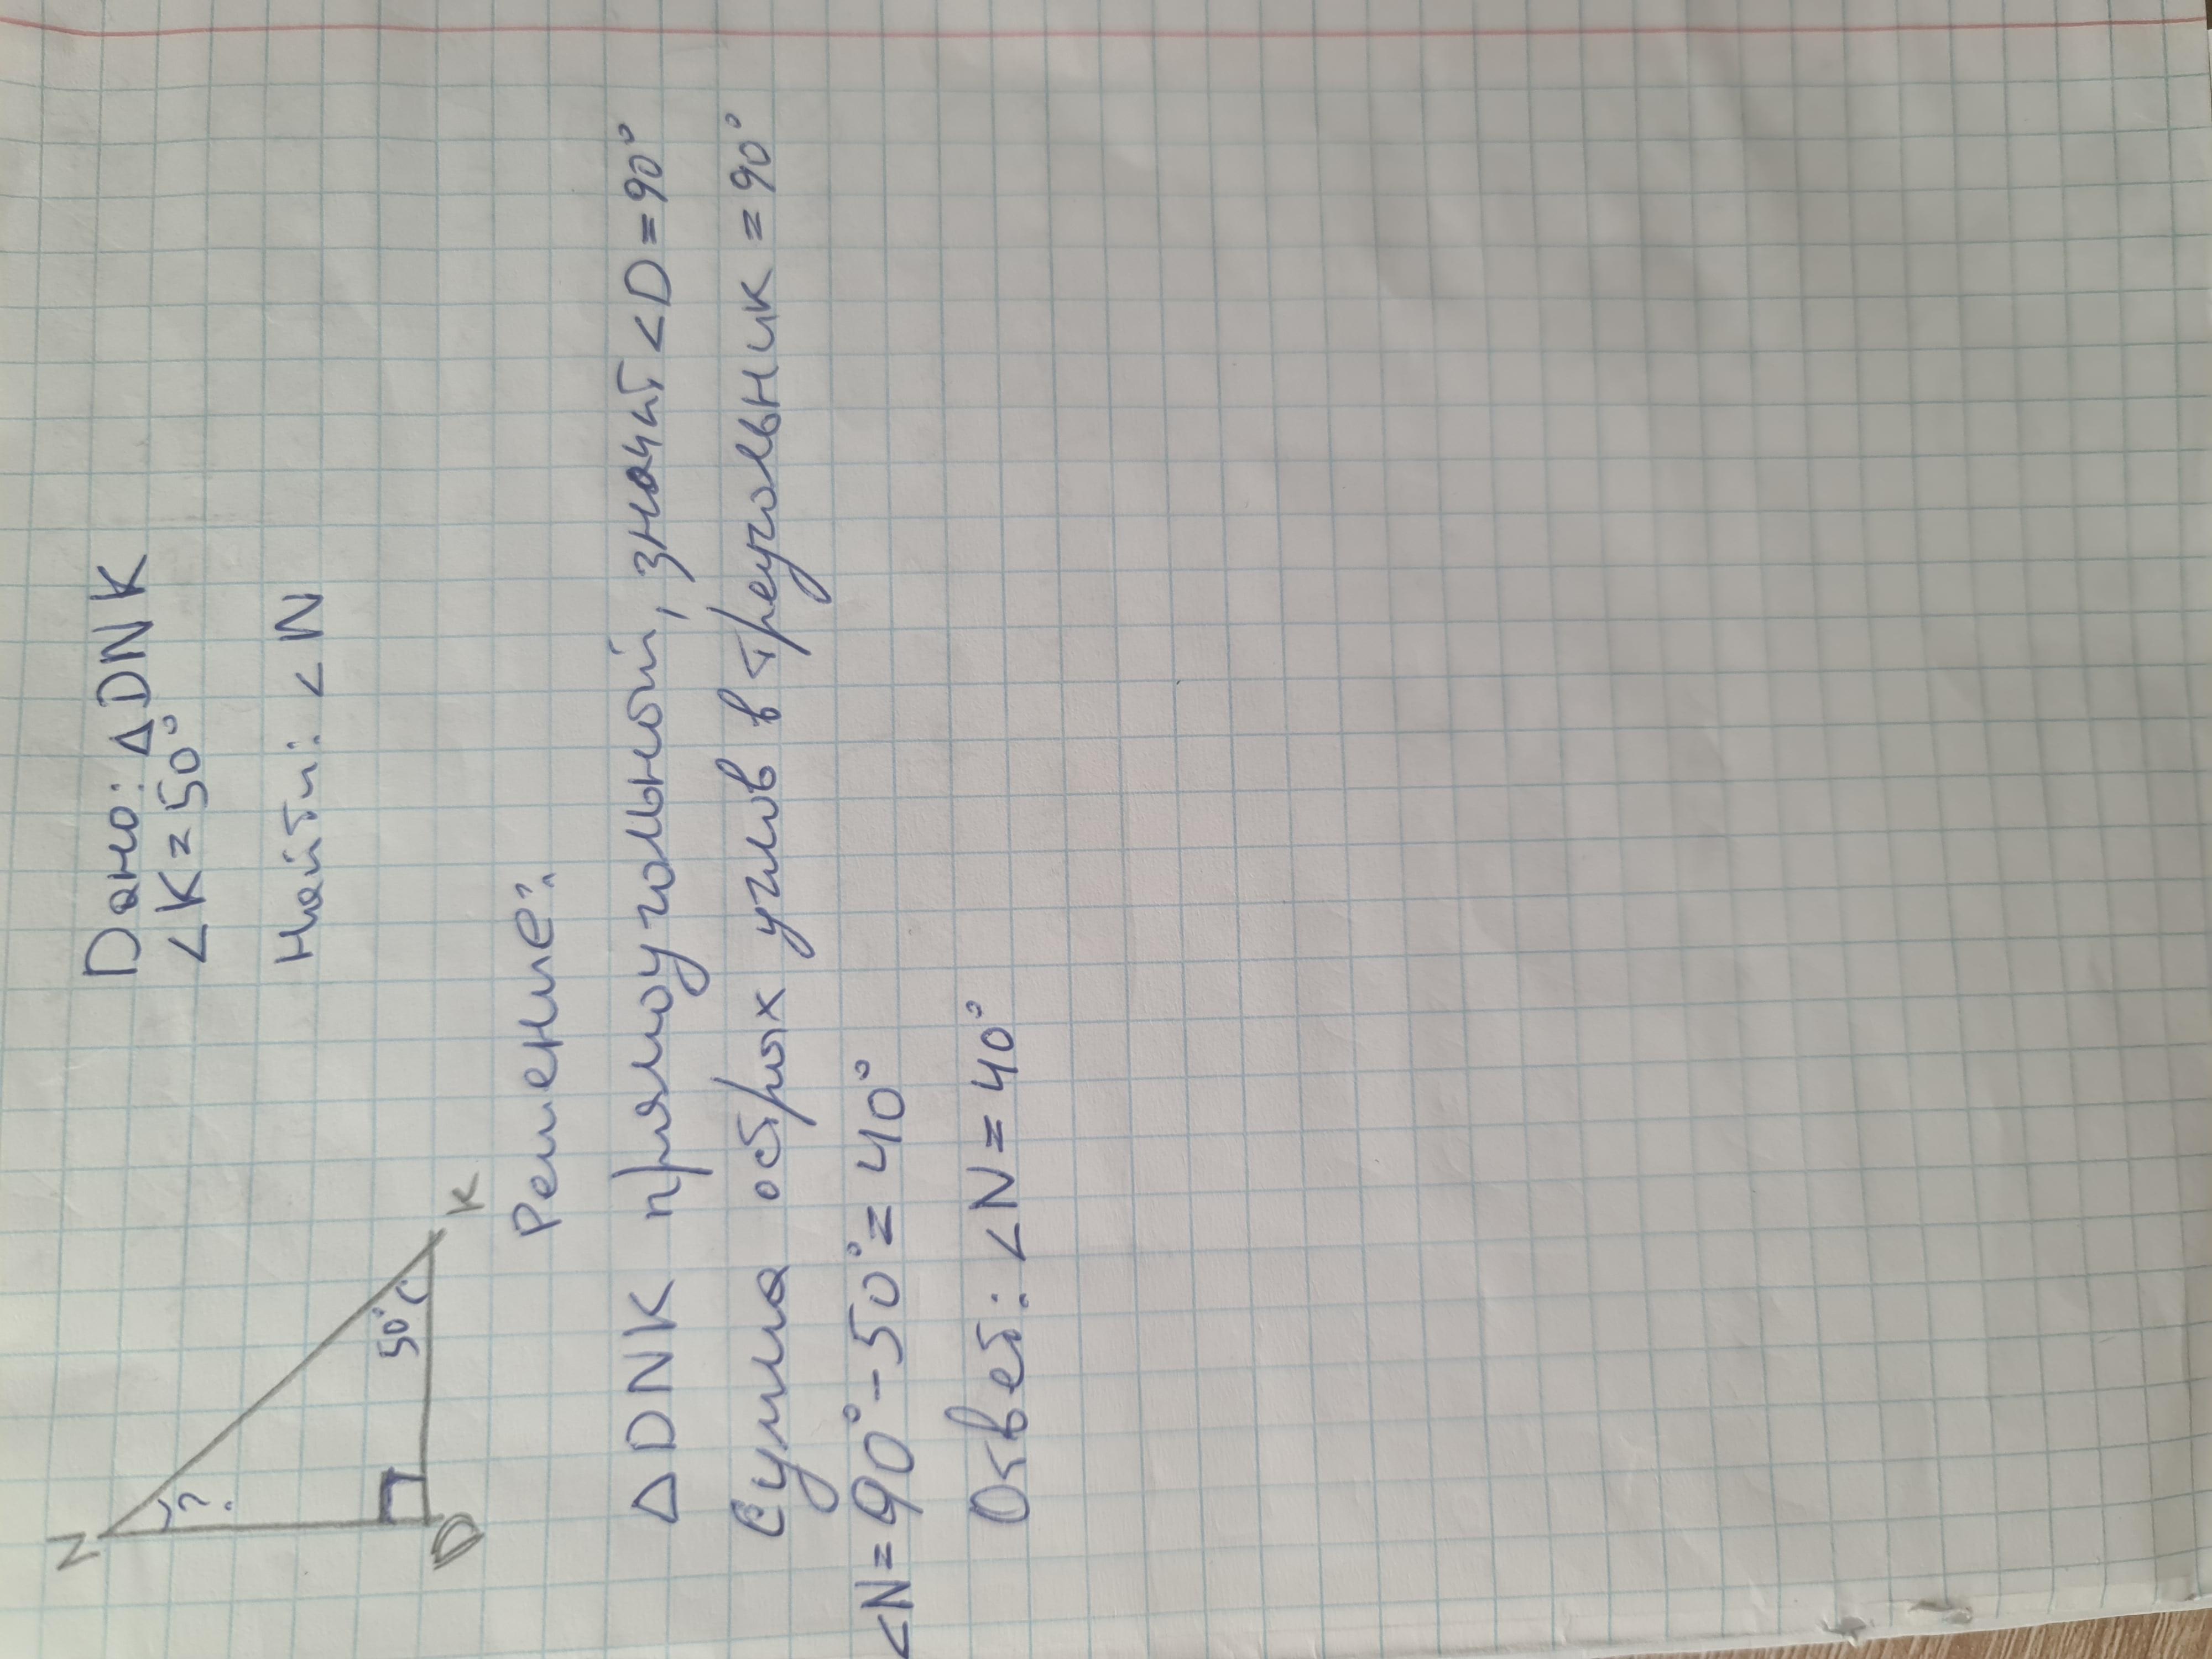 N
?
50°
D
K
Дано: ΔDNK
<K=50°
Найти: <N
Решение:
ΔDNK прямоугольный, значит <D=90°
Сумма острых углов в треугольник = 90°
<N=90°-50°=40°
Ответ: <N=40°